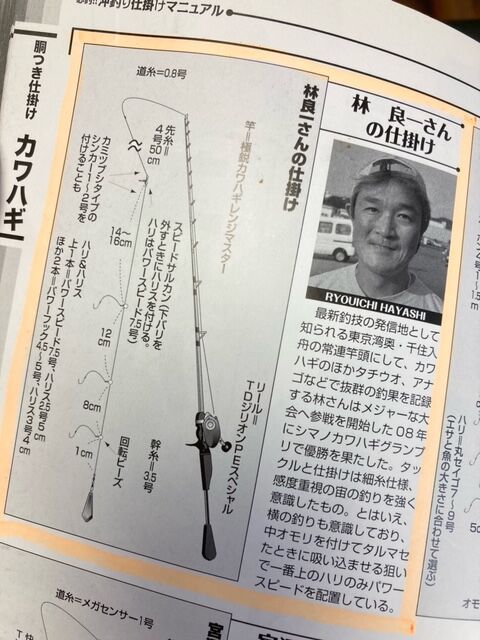 沖釣り仕掛けマニュアル
胴つき仕掛け
カワハギ
林 良一さん
の仕掛け
RYOUICHI HAYASHI
最新釣技の発信地として
知られる東京湾奥・千住入
舟の常連竿頭にして、カワ
ハギのほかタチウオ、アナ
ゴなどで抜群の釣果を記録
する林さんはメジャーな大
会へ参戦を開始した08年
にシマノカワハギグランプ
リで優勝を果たした。タッ
クルと仕掛けは細糸仕様、
感度重視の宙の釣りを強く
意識したもの。とはいえ、
横の釣りも意識しており、
中オモリを付けてタルマセ
たときに吸い込ませる狙い
で一番上のハリのみパワー
スピードを配置している。
林良一さんの仕掛け
竿=極鋭カワハギレンジマスター
リール=
TDジリオンPEスペシャル
道糸=0.8号
先糸=
4号50cm
カミツブシタイプの
シンカー1〜2号を
付けることも
スピードサルカン(下バリを
外すときにハリスを付ける。
ハリはパワースピード7.5号)
14〜
16cm
12
cm
8cm
1cm
幹糸=3.5号
回転ビーズ
ハリ&ハリス
上1本=パワースピード7.5号、ハリス2.5号5cm
ほか2本=パワーフック4.5〜5号、ハリス3号4cm
ハリ=丸セイゴ7〜9号
(エサと魚の大きさに合わせて選ぶ)
道糸=メガセンサー1号